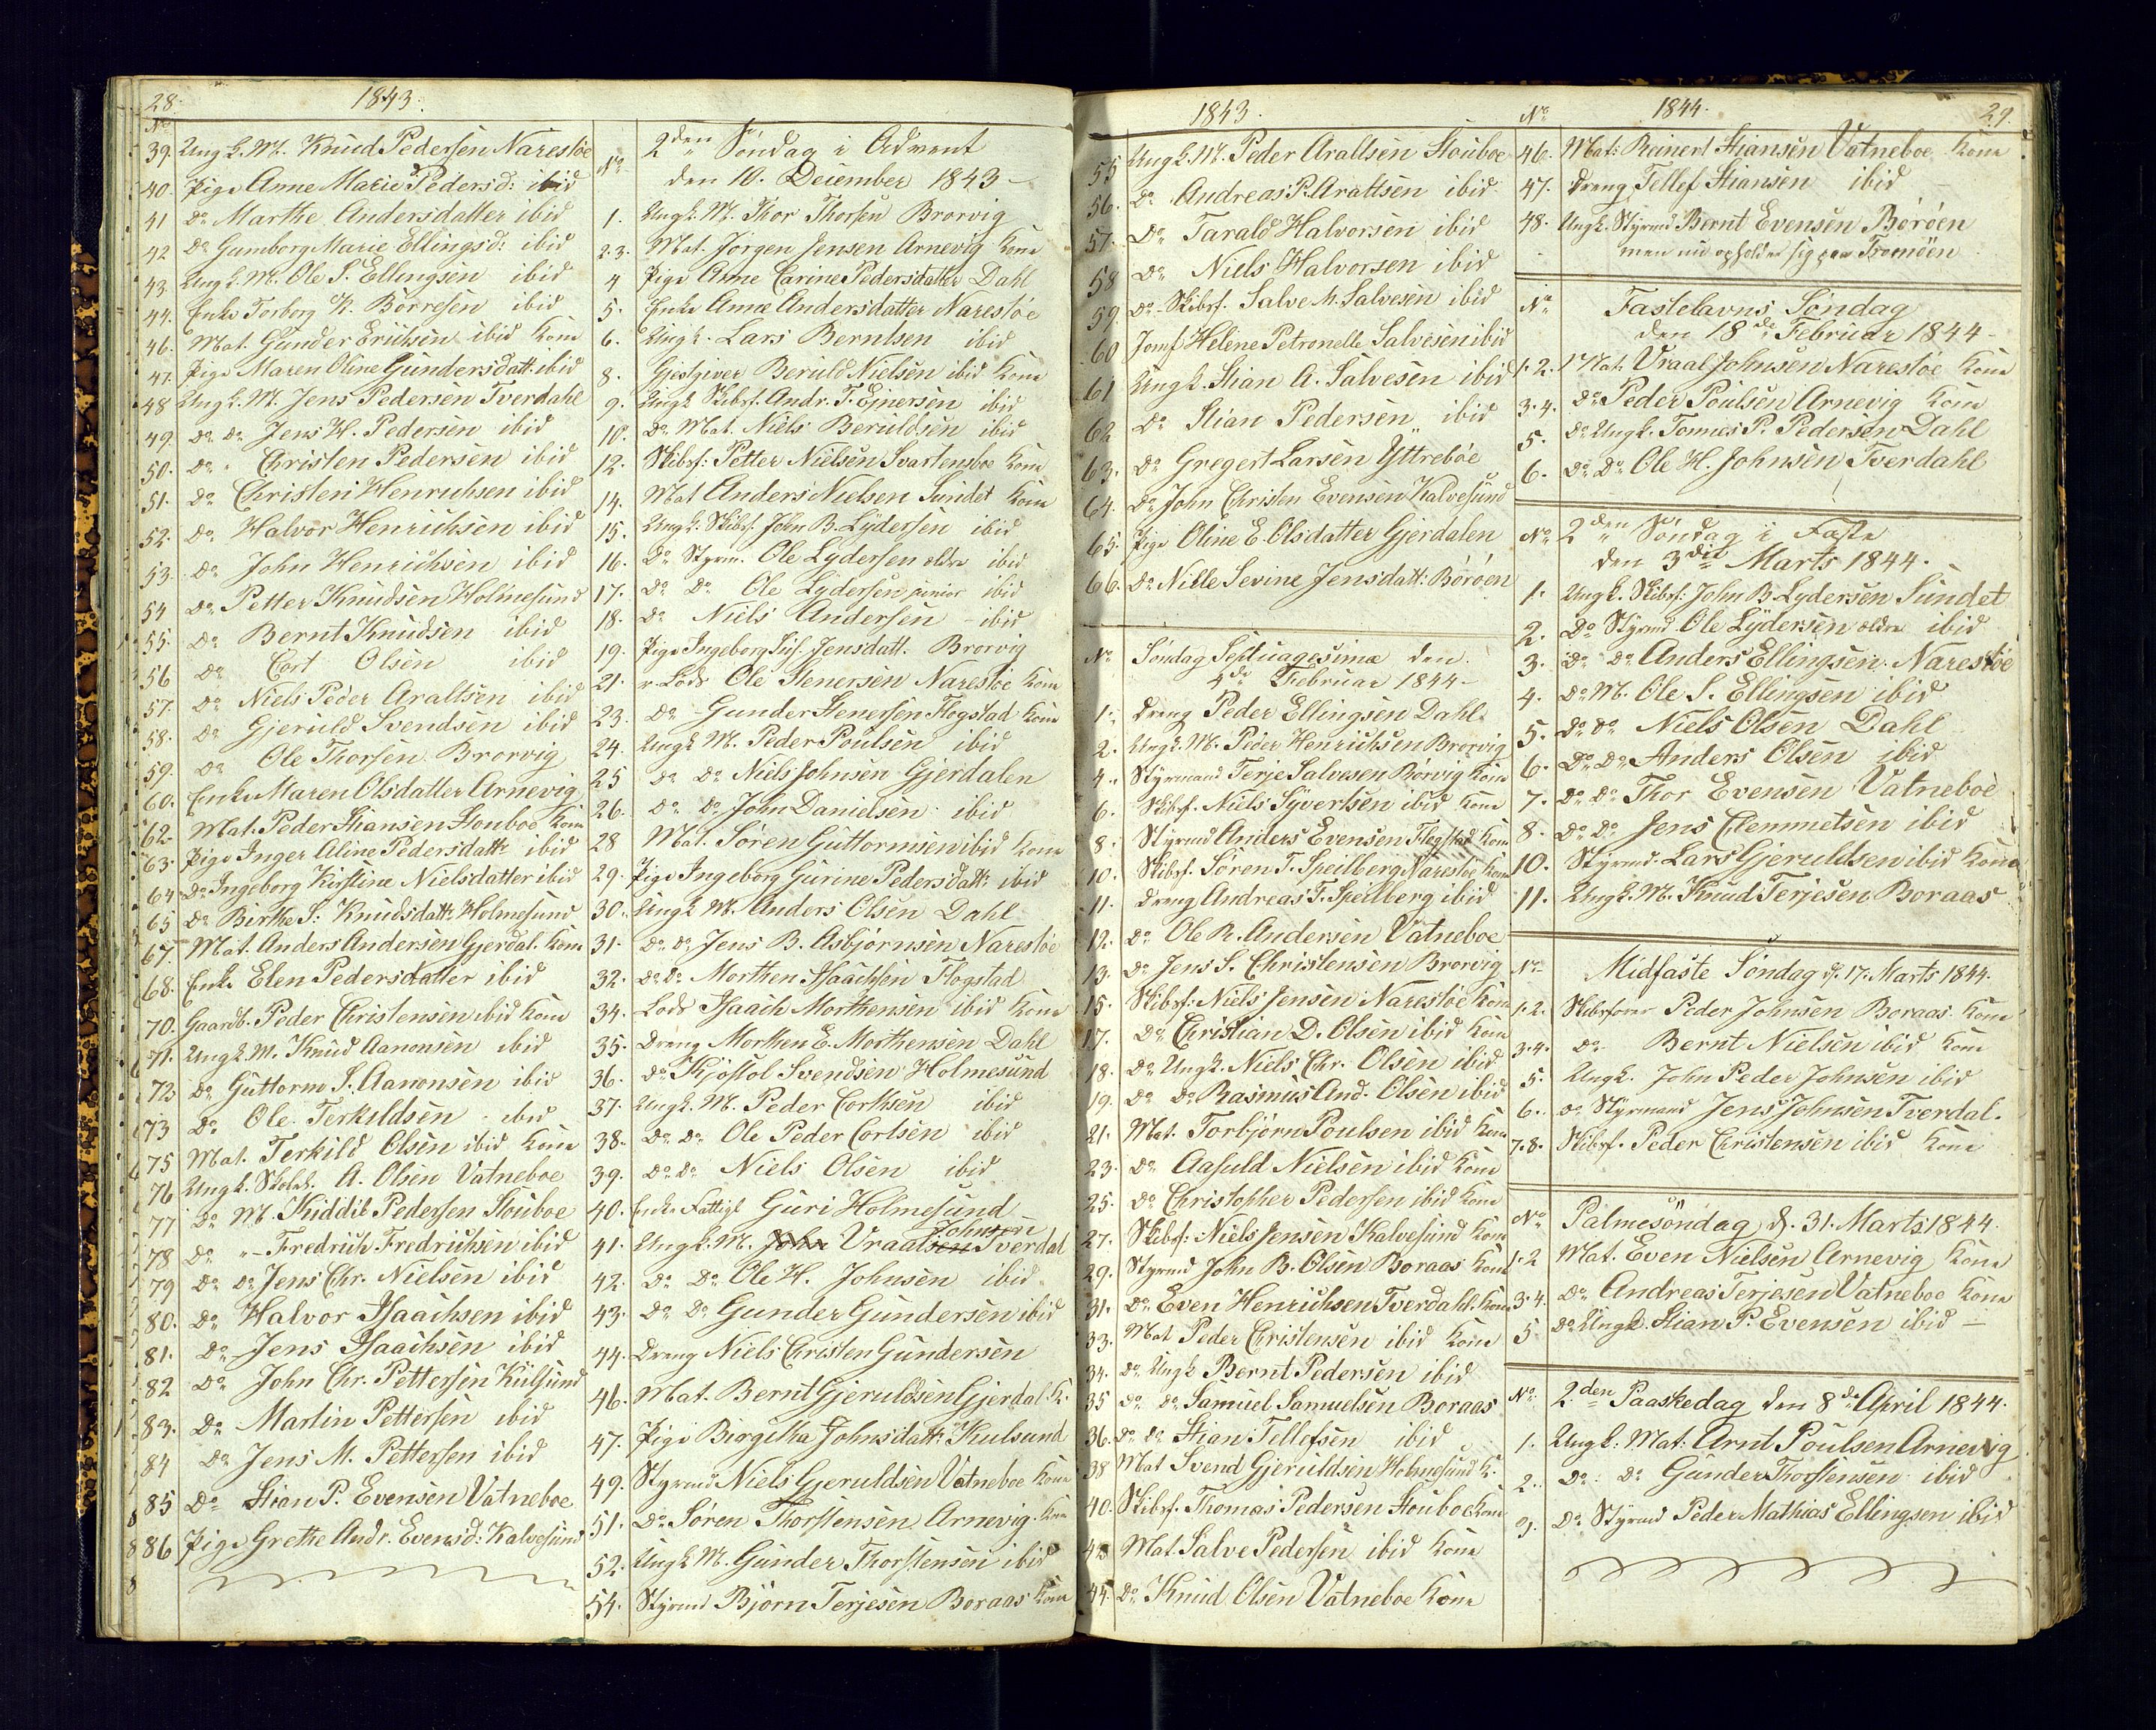 28. 1843.
No
39. Ungk. M. Knud Pedersen Narestøe
40. Pige Anne Marie Pedersd: ibid
41 Do Marthe Andersdatter ibid
42 Do Gumborg Marie Ellingsd: ibid
43. Ungk. M. Ole S. Ellingsen ibid
44. Enke Torborg K. Børresen ibid
46. Mat. Gunder Erichsen ibid Kone
47. Pige Maren Oline Gundersdatt. ibid
48 Ungk. M. Jens Pedersen Tverdahl
49. Do Do Jens H. Pedersen ibid
50. Do " Christen Pedersen ibid
51. Do Christen Henrichsen ibid
52. Do Halvor Henrichsen ibid
53. Do John Henrichsen ibid
54 Do Petter Knudsen Holmesund
55. Do Bernt Knudsen ibid
56 Do Cort Olsen ibid
57. Do Niels Peder Araltsen ibid
58. Do Gjeruld Svendsen ibid
59. Do Ole Thorsen Brorvig
60. Enke Maren Olsdatter Arnevig
62. Mat. Peder Stiansen Stouboe Kone
63. Pige Inger Aline Pedersdatt: ibid
64 Do Ingeborg Kirstine Nielsdatter ibid
65 Do Birthe S: Knudsdatt: Holmesund
67. Mat. Anders Andersen Gjerdal. Kone
68. Enke Elen Pedersdatter ibid
70. Gaardb. Peder Christensen ibid Kone
71. Ungk. M. Knud Aanonsen ibid
72 Do Guttorm S. Aanonsen ibid
73 Do Ole Terkildsen ibid
75 Mat. Terkild Olsen ibid Kone
76 Ungk. Skoleh. A. Olsen Vatneboe
77 Do M. Kiddil Pedersen Stouboe
78 Do " Fredrich Fredrichsen ibid
79 Do Do Jens Chr. Nielsen ibid
80. Do Halvor Isaachsen ibid
81. Do Jens Isaachsen ibid
82 Do John Chr. Pettersen Kulsund
83. Do Martin Pettersen ibid
84 Do Jens M. Pettersen ibid
85 Do Stian P. Evensen Vatneboe
86 Pige Grethe Andr. Evensd: Kalvesund
No 2den Søndag i Advent
den 10. December 1843
1. Ungk. M. Thor Thorsen Brorvig
2.3. Mat. Jørgen Jensen Arnevig Kone
4 Pige Anne Carine Pedersdatter Dahl
5. Enke Anne Andersdatter Narestøe
6. Ungk. Lars Berntsen ibid
8. Gjestgiver Beruld Nielsen ibid Kone
9. Ungk Skibsf. Andr. T. Ejnersen ibid
10. Do Mat. Niels Beruldsen ibid
12. Skibsf: Petter Nielsen Svartensboe Kone
14. Mat Anders Nielsen Sundet Kone
15. Ungk. Skibsf. John B. Lydersen ibid
16. Do Styrm. Ole Lydersen ældre ibid
17. Do Do Ole Lydersen junior ibid
18. Do Niels Andersen ibid
19. Pige Ingeborg Sus. Jensdatt. Brorvig
21. Lods Ole Stenersen Narestøe Kone
23. Do Gunder Stenersen Flogstad Kone
24. Ungk M. Peder Poulsen ibid
25 Do Do Niels Johnsen Gjerdalen
26. Do Do John Danielsen ibid
28 Mat. Søren Guttormsen ibid Kone
29. Pige Ingeborg Gurine Pedersdatt: ibid
30. Ungk M. Anders Olsen Dahl
31. Do Do Jens B. Asbjørnsen Narestøe
32. Do Do Morthen Isaachsen Flogstad
34. Lods Isaach Morthensen ibid Kone
35. Dreng Morthen E. Morthensen Dahl
36. Do Kjøstol Svendsen Holmesund
37. Ungk. M. Peder Cortsen ibid
38. Do Do Ole Peder Cortsen ibid
39. Do Do Niels Olsen ibid
40. Enke Fattigl Guri Holmesund
41. Ungk. M. John Vraalsen Johnsen Tverdal
42. Do Do Ole H. Johnsen ibid
43. Do Do Gunder Gundersen ibid
44. Dreng Niels Christen Gundersen
46. Mat. Bernt Gjeruldsen Gjerdal K.
47. Pige Birgitha Johnsdatt: Kulsund
49. Styrmd Niels Gjeruldsen Vatneboe Kone
51. Do Søren Thorstensen Arnevig Kone
52. Ungk M. Gunder Thorstensen ibid
54. Styrmd Bjørn Terjesen Boraas Kone
1843.
55 Ungk. M. Peder Araltsen Stouboe
56. Do Andreas P. Araltsen ibid
57. Do Tarald Halvorsen ibid
58 Do Niels Halvorsen ibid
59. Do Skibsf. Salve M. Salvesen ibid
60 Jomf Helene Petronelle Salvesen ibid
61 Ungk. Stian A. Salvesen ibid
62 Do Stian Pedersen ibid
63. Do Gregert Larsen Yttrebøe
64. Do John Christen Evensen Kalvesund
65. Pige Oline E. Olsdatter Gjerdalen
66. Do Nille Sevine Jensdatt: Børøen
No Søndag Septuagesima den
4de Februar 1844
1. Dreng Peder Ellingsen Dahl
2. Ungk. M. Peder Henrichsen Brorvig
4. Styrmand Terje Salvesen Børvig Kone
6. Skibsf. Niels Syvertsen ibid Kone
8. Styrmd Anders Evensen Flogstad Kone
10. Skibsf. Søren T. Speilberg Narestøe Kone
11. Dreng Andreas T. Speilberg ibid
12. Do Ole R. Andersen Vatneboe
13. Do Jens S. Christensen Brorvig
15. Skibsf. Niels Jensen Narestøe Kone
17. Do Christian D. Olsen ibid Kone
18. Do Ungk. Niels Chr. Olsen ibid
19. Do Do Rasmus And. Olsen ibid
21. Mat. Torbjørn Poulsen ibid Kone
23. Do Aasuld Nielsen ibid Kone
25. Do Christopher Pedersen ibid Kone
27. Skibsf: Niels Jensen Kalvesund Kone
29. Styrmd John B. Olsen Boraas Kone
31. Do Even Henrichsen Tverdahl. Kone
33. Mat Peder Christensen ibid Kone
34. Do Ungk Bernt Pedersen ibid
35 Do Do Samuel Samuelsen Boraas
36. Do Do Stian Tellefsen ibid
38 Mat Svend Gjeruldsen Holmesund K.
40. Skibsf. Thomas Pedersen Stouboe Kone
42 Mat. Salve Pedersen ibid Kone
44. Do Knud Olsen Vatneboe Kone
No 1844. 29.
46. Mat: Reinert Stiansen Vatneboe Kone
47. Dreng Tellef Stiansen ibid
48. Ungk. Styrmd Bernt Evensen Børøen
men nu opholder sig paa Tromøen
No Fastelavns Søndag
den 18de Februar 1844
1.2. Mat. Vraal Johnsen Narestøe Kone
3.4. Do Peder Poulsen Arnevig Kone
5. Do Ungk. Tønnes P. Pedersen Dahl
6. Do Do Ole H. Johnsen Tverdahl
No 2den Søndag i Faste
den 3die Marts 1844.
1. Ungk. Skibsf: John B. Lydersen Sundet
2. Do Styrmd Ole Lydersen ældre ibid
3. Do Do Anders Ellingsen Narestøe
4. Do M. Ole S. Ellingsen ibid
5. Do Do Niels Olsen Dahl
6. Do Do Anders Olsen ibid
7. Do Do Thor Evensen Vatneboe
8. Do Do Jens Clemmetsen ibid
10. Styrmd. Lars Gjeruldsen ibid Kone
11. Ungk. M. Knud Terjesen Boraas
No Midfaste Søndag d. 17. Marts 1844.
1.2. Skibsfører Peder Johnsen Boraas Kone
3.4. Do Bernt Nielsen ibid Kone
5. Ungk. John Peder Johnsen ibid
6. Do Styrmand Jens Johnsen Tverdal.
7.8. Skibsf. Peder Christensen ibid Kone
No Palmesøndag d. 31. Marts 1844.
1.2 Mat. Even Nielsen Arnevig Kone
3.4. Do Andreas Terjesen Vatneboe Kone
5 Do Ungk. Stian P. Evensen ibid
No 2den Paaskedag den 8de April 1844.
1. Ungk: Mat: Arnt Poulsen Arnevig
2. Do Do Gunder Thorstensen ibid
3. Do Styrmd Peder Mathias Ellingsen ibid